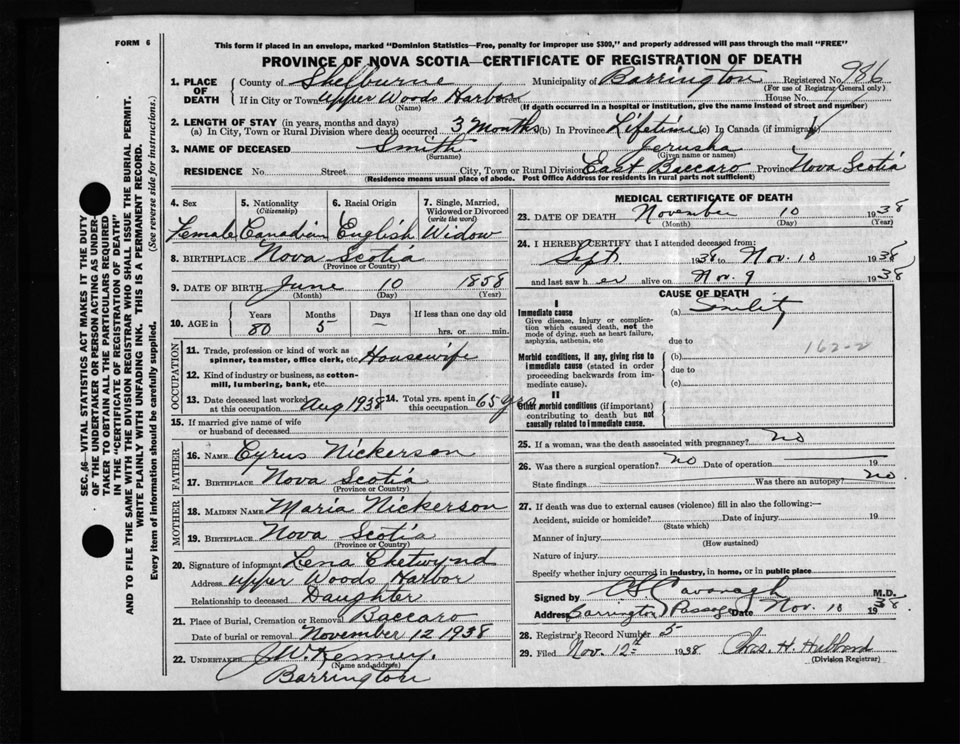 FORM 6
This form if placed in an envelope, marked "Dominion Statistics—Free, penalty for improper use $300," and properly addressed will pass through the mail "FREE"
PROVINCE OF NOVA SCOTIA—CERTIFICATE OF REGISTRATION OF DEATH
1. PLACE OF DEATH County of Shelburne Municipality of Barrington Registered No. 986
(For use of Registrar General only)
If in City or Town Upper Woods Harbor Street House No.
(Name) (If death occurred in a hospital or institution, give the name instead of street and number)
2. LENGTH OF STAY (in years, months and days)
(a) In City, Town or Rural Division where death occurred 3 Months (b) In Province Lifetime (c) In Canada (if immigrant)
3. NAME OF DECEASED Smith Jerusha
(Surname) (Given name or names)
RESIDENCE No. Street City, Town or Rural Division East Baccaro Province Nova Scotia
(Residence means usual place of abode. Post Office Address for residents in rural parts not sufficient)
SEC. 16—VITAL STATISTICS ACT MAKES IT THE DUTY
OF THE UNDERTAKER OR PERSON ACTING AS UNDER-
TAKER TO OBTAIN ALL THE PARTICULARS REQUIRED
IN THE "CERTIFICATE OF REGISTRATION OF DEATH"
AND TO FILE THE SAME WITH THE DIVISION REGISTRAR WHO SHALL ISSUE THE BURIAL PERMIT.
WRITE PLAINLY WITH UNFADING INK. THIS IS A PERMANENT RECORD.
Every item of information should be carefully supplied. (See reverse side for instructions.)
4. Sex 5. Nationality (Citizenship) 6. Racial Origin 7. Single, Married, Widowed or Divorced (write the word)
Female Canadian English Widow
8. BIRTHPLACE Nova Scotia
(Province or Country)
9. DATE OF BIRTH June 10 1858
(Month) (Day) (Year)
10. AGE in Years Months Days If less than one day old
80 5 — hrs. or min.
OCCUPATION
11. Trade, profession or kind of work as spinner, teamster, office clerk, etc. Housewife
12. Kind of industry or business, as cotton-mill, lumbering, bank, etc.
13. Date deceased last worked at this occupation Aug 1938 14. Total yrs. spent in this occupation 65 yrs
15. If married give name of wife or husband of deceased
FATHER
16. NAME Cyrus Nickerson
17. BIRTHPLACE Nova Scotia
(Province or Country)
MOTHER
18. MAIDEN NAME Maria Nickerson
19. BIRTHPLACE Nova Scotia
(Province or Country)
20. Signature of informant Lena Chetwynd
Address Upper Woods Harbor
Relationship to deceased Daughter
21. Place of Burial, Cremation or Removal Baccaro
Date of burial or removal November 12 1938
22. UNDERTAKER J.W. Kenney.
(Name and address)
Barrington
MEDICAL CERTIFICATE OF DEATH
23. DATE OF DEATH November 10 1938
(Month) (Day) (Year)
24. I HEREBY CERTIFY that I attended deceased from:
Sept. 1938 to Nov. 10 1938
and last saw h er alive on Nov. 9 1938
CAUSE OF DEATH
I
Immediate cause (a) Senility
Give disease, injury or complication which caused death, not the mode of dying, such as heart failure, asphyxia, asthenia, etc
due to
162-2
Morbid conditions, if any, giving rise to immediate cause (stated in order proceeding backwards from immediate cause). (b)
due to
(c)
II
Other morbid conditions (if important) contributing to death but not causally related to immediate cause.
25. If a woman, was the death associated with pregnancy? no
26. Was there a surgical operation? no Date of operation 19
State findings Was there an autopsy? no
27. If death was due to external causes (violence) fill in also the following:—
Accident, suicide or homicide? Date of injury 19
(State which)
Manner of injury
(How sustained)
Nature of injury
Specify whether injury occurred in industry, in home, or in public place
Signed by Cavanagh M.D.
Address Barrington Passage Date Nov. 10 1938
28. Registrar's Record Number 5
29. Filed Nov. 12th 1938 Chas. H. Hubbard
(Division Registrar)